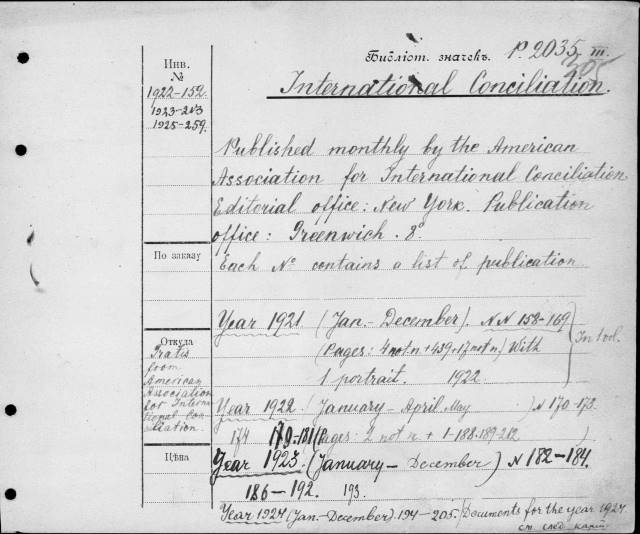 Библіот. значекъ. P 2035 III.
305
Инв.
№
1922-152.
1923-213
1925-259.
International Conciliation.
Published monthly by the American
Association for International Conciliation
Editorial office: New York. Publication
office: Greenwich. 8°
По заказу
Each № contains a list of publication
Year 1921 (Jan.- December). NN 158-169
(Pages: 4 not. n + 439 + 17 not n.) With
1 portrait. 1922
In 1 vol.
Откуда
Gratis
from
American
Association
for Interna
tional Con
ciliation.
Year 1922 (January - April May ) N 170-173.
174 179-181 (Pages: 2 not n + 1-188.189-212
Цѣна
Year 1923 (January - December) N 182-184.
186-192. 193.
Year 1924 (Jan.-December). 194-205. (Documents for the year 1924.
см. след. карт.